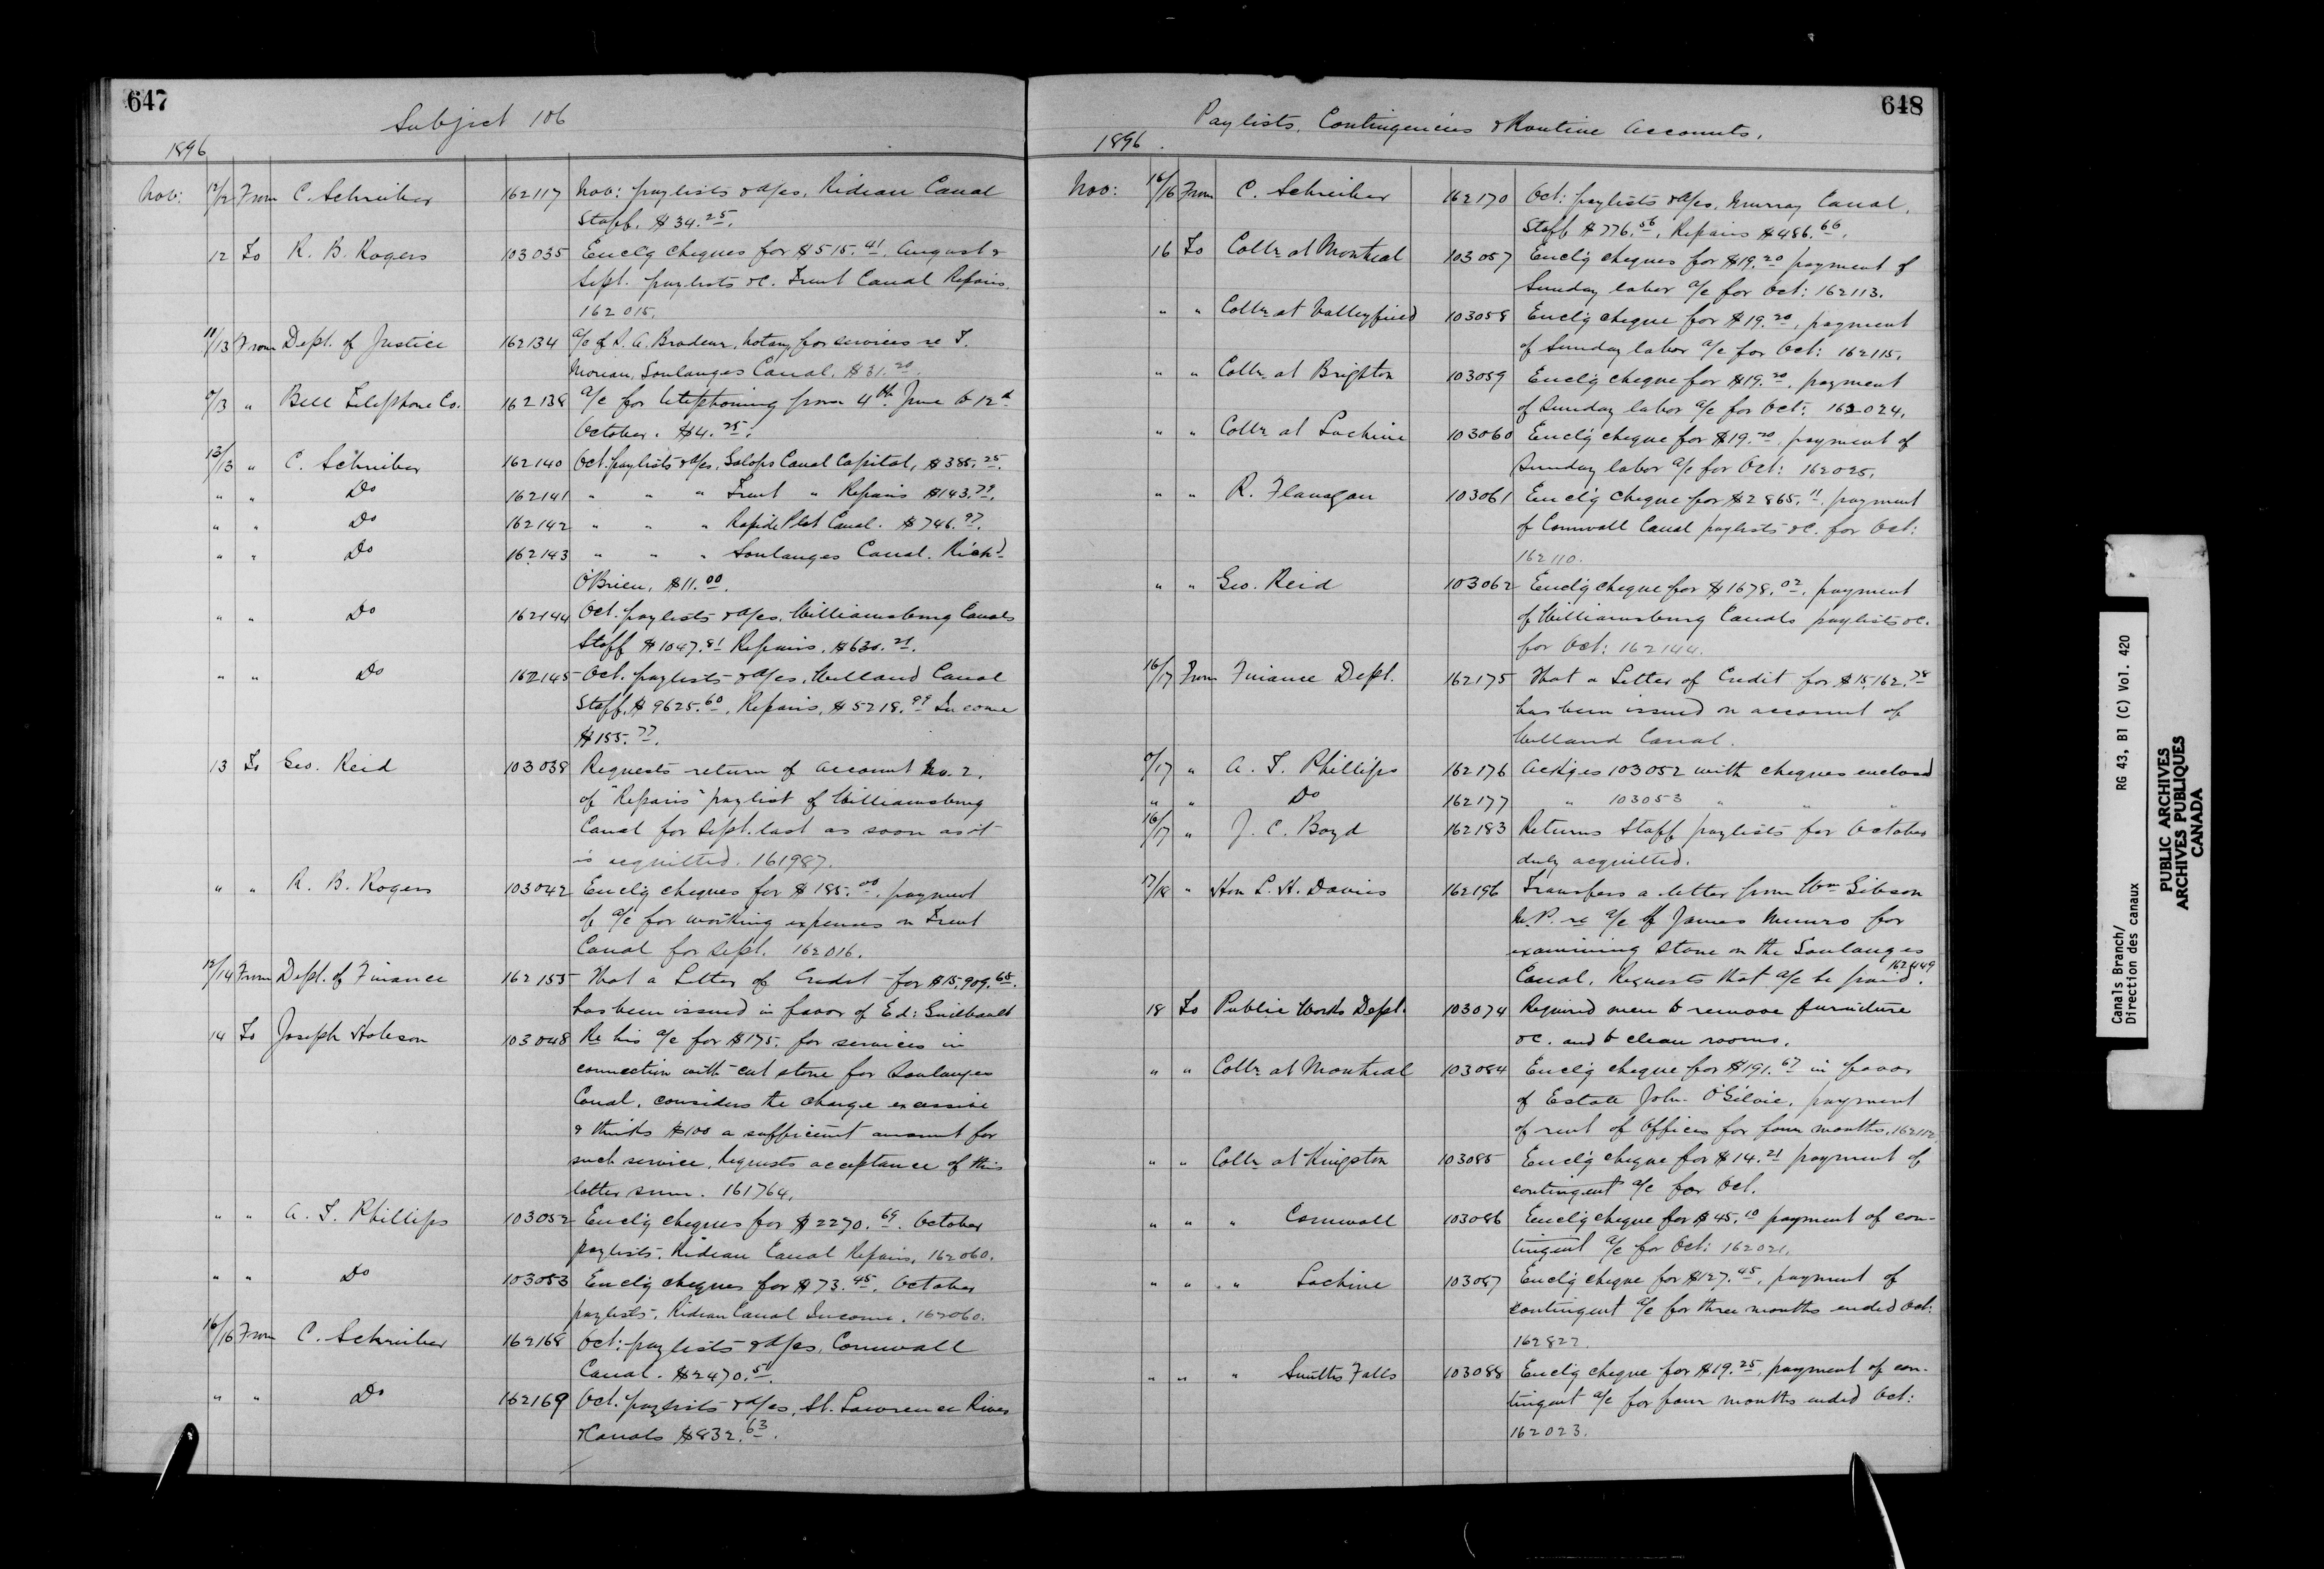 647
Subject 106
1896
Nov: 12/12 From C. Schreiber 162117 Nov: paylists & a/cs, Rideau Canal
Staff. $34.25.
12 To R. B. Rogers 103035 Enclg cheques for $515.41. August &
Sept. paylists &c. Trent Canal Repairs.
162015.
11/13 From Dept. of Justice 162134 a/c of A. Brodeur, Notary for services re T.
Moreau, Soulanges Canal. $31.20.
9/13 " Bell Telephone Co. 162138 a/c for telephoning from 4th June to 12th
October. $4.25.
12/13 " C. Schreiber 162140 Oct. paylists & a/cs, Galops Canal Capital, $385.25.
" " Do 162141 " " " Trent " Repairs $143.79.
" " Do 162142 " " " Rapide Plat Canal. $746.97.
" " Do 162143 " " " Soulanges Canal. Richd
O'Brien, $11.00.
" " Do 162144 Oct. paylists & a/cs, Williamsburg Canals
Staff $1047.81 Repairs, $630.21.
" " Do 162145 Oct. paylists & a/cs, Welland Canal
Staff, $9625.60, Repairs, $5218.99 Income
$155.77.
13 To Geo. Reid 103038 Requests return of account No. 2.
of "Repairs" paylist of Williamsburg
Canal for Sept. last as soon as it
is acquitted. 161987.
" " R. B. Rogers 103042 Enclg cheques for $185.00, payment
of a/c for working expenses on Trent
Canal for Sept. 162016.
12/14 From Dept. of Finance 162155 That a Letter of Credit for $15,909.65.
has been issued in favor of Ed: Guilbault
14 To Joseph Hobson 103048 Re his a/c for $175. for services in
connection with cut stone for Soulanges
Canal, considers the charge excessive
& thinks $100 a sufficient amount for
such service, Requests acceptance of this
latter sum. 161764.
" " A. T. Phillips 103052 Enclg cheques for $2270.69. October
paylists. Rideau Canal Repairs, 162060.
" " Do 103053 Enclg cheques for $73.45. October
paylists. Rideau Canal Income. 162060.
16/16 From C. Schreiber 162168 Oct: paylists & a/cs, Cornwall
Canal. $2470.51.
" " Do 162169 Oct. paylists & a/cs, St. Lawrence River
& Canals $832.63.
648
Paylists, Contingencies & Routine Accounts.
1896.
Nov: 16/16 From C. Schreiber 162170 Oct: paylists & a/cs, Murray Canal,
Staff $776.56, Repairs $486.66.
16 To Collr at Montreal 103057 Enclg cheques for $19.20 payment of
Sunday labor a/c for Oct: 162113.
" " Collr at Valleyfield 103058 Enclg cheque for $19.20, payment
of Sunday labor a/c for Oct: 162115.
" " Collr at Brighton 103059 Enclg cheque for $19.20, payment
of Sunday labor a/c for Oct: 162024.
" " Collr at Lachine 103060 Enclg cheque for $19.20, payment of
Sunday labor a/c for Oct: 162025.
" " R. Flanagan 103061 Enclg cheque for $2865.11. payment
of Cornwall Canal paylists &c. for Oct:
162110.
" " Geo. Reid 103062 Enclg cheque for $1678.02. payment
of Williamsburg Canals paylists &c.
for Oct: 162144.
16/17 From Finance Dept. 162175 That a Letter of Credit for $15,162.78
has been issued on account of
Welland Canal.
/17 " A. T. Phillips 162176 Ackges 103052 with cheques enclosed
" " Do 162177 " 103053 " " "
16/17 " J. C. Boyd 162183 Returns Staff paylists for October
duly acquitted.
17/18 " Hon L. H. Davies 162196 Transfers a letter from Wm Gibson
M.P. re a/c of James Munro for
examining stone on the Soulanges
Canal. Requests that a/c be paid. 162449
18 To Public Works Dept. 103074 Required men to remove furniture
&c. and to clean rooms.
" " Collr at Montreal 103084 Enclg cheque for $191.67 in favor
of Estate John O'Gilvie, payment
of rent of Offices for four months, 162112
" " Collr at Kingston 103085 Enclg cheque for $14.21 payment of
contingent a/c for Oct.
" " " Cornwall 103086 Enclg cheque for $45.10 payment of con-
tingent a/c for Oct: 162021.
" " " Lachine 103087 Enclg cheque for $127.45, payment of
contingent a/c for three months ended Oct:
162822.
" " " Smiths Falls 103088 Enclg cheque for $19.25, payment of con-
tingent a/c for four months ended Oct:
162023.
Canals Branch/
Direction des canaux
RG 43, B1 (C) Vol. 420
PUBLIC ARCHIVES
ARCHIVES PUBLIQUES
CANADA